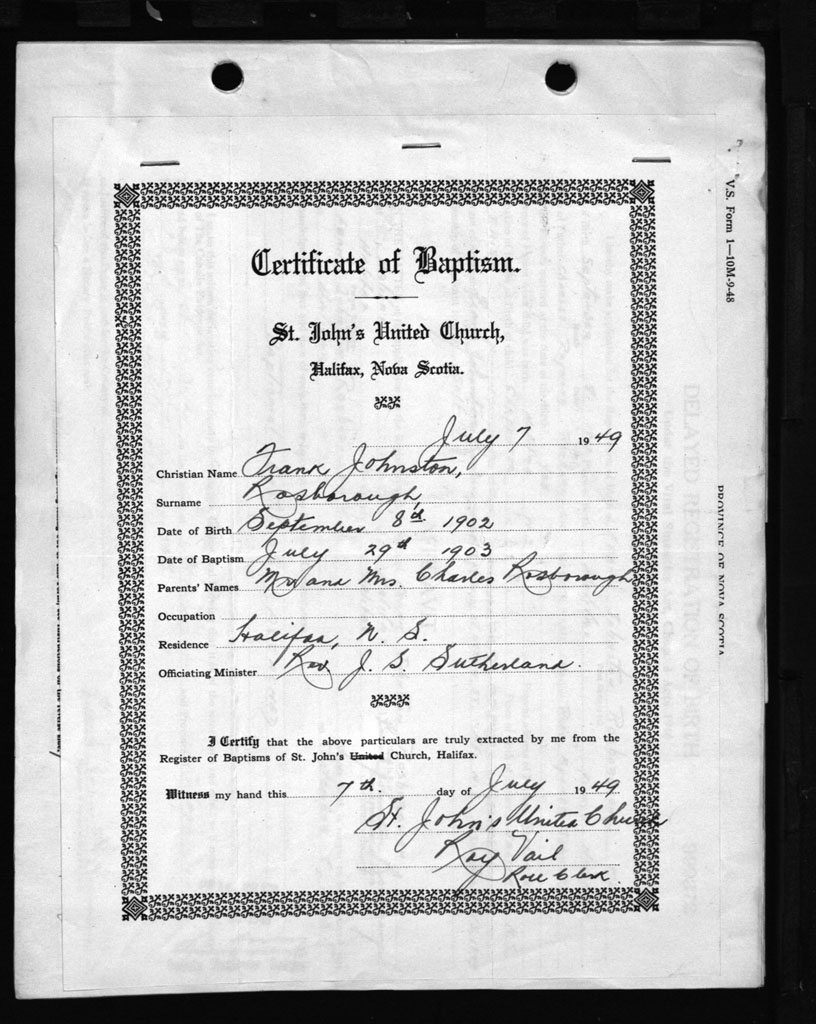 V.S. Form 1—10M-9-48
Certificate of Baptism.
St. John's United Church,
Halifax, Nova Scotia.
July 7 1949
Christian Name Frank Johnston,
Surname Rosborough,
Date of Birth September 8'd. 1902
Date of Baptism July 29th 1903
Parents' Names Mr and Mrs. Charles Rosborough
Occupation
Residence Halifax, N. S.
Officiating Minister Rev J. S. Sutherland.
I Certify that the above particulars are truly extracted by me from the
Register of Baptisms of St. John's United Church, Halifax.
Witness my hand this 7th. day of July 1949
St. John's United Church
Ray Vail
Roll Clerk.
PROVINCE OF NOVA SCOTIA
DELAYED REGISTRATION OF BIRTH